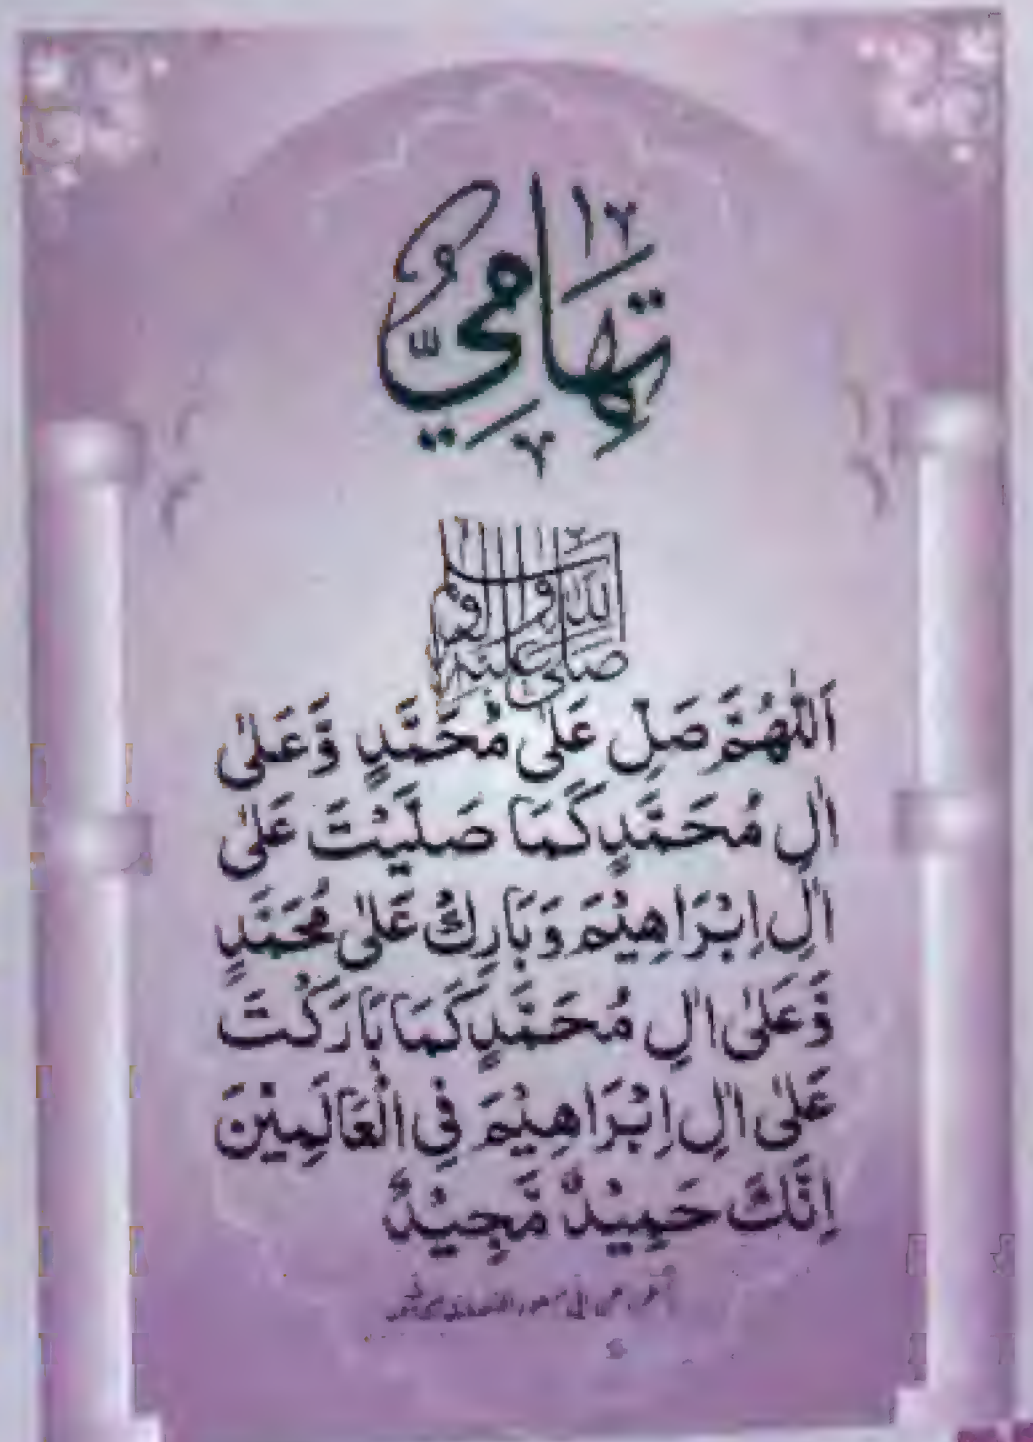 تِهَامِيٌّ
صَلَّى اللّٰهُ عَلَيْهِ وَاٰلِهٖ وَسَلَّمَ
اَللّٰهُمَّ صَلِّ عَلٰى مُحَمَّدٍ وَّعَلٰى
اٰلِ مُحَمَّدٍ كَمَا صَلَّيْتَ عَلٰى
اٰلِ اِبْرَاهِيْمَ وَبَارِكْ عَلٰى مُحَمَّدٍ
وَّعَلٰى اٰلِ مُحَمَّدٍ كَمَا بَارَكْتَ
عَلٰى اٰلِ اِبْرَاهِيْمَ فِي الْعَالَمِيْنَ
اِنَّكَ حَمِيْدٌ مَّجِيْدٌ